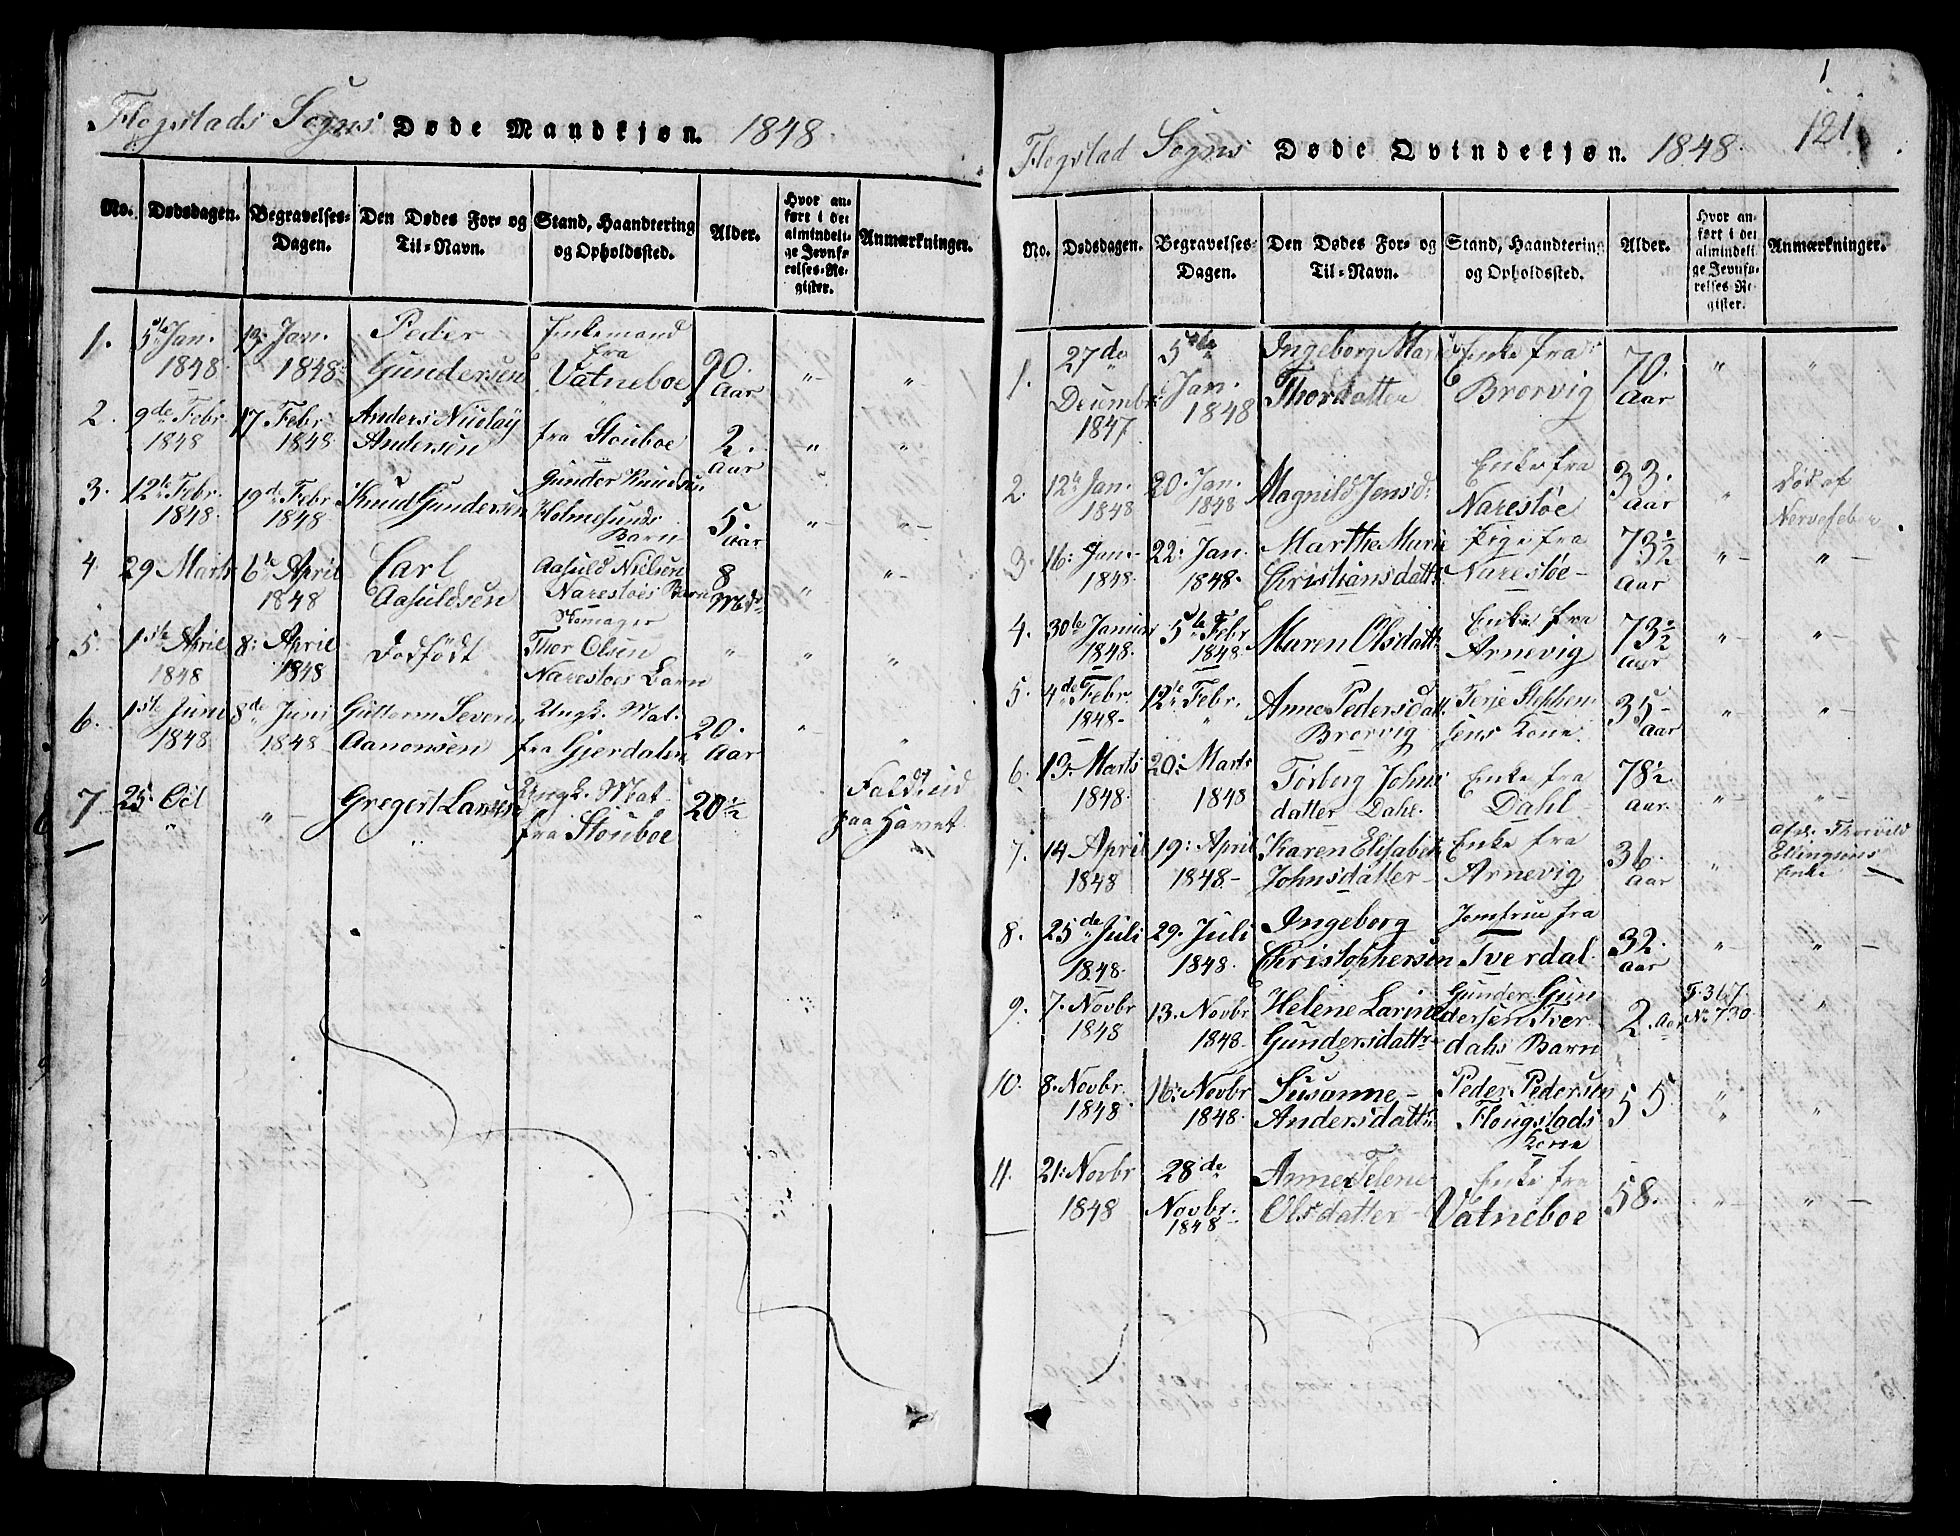 Flogstads Sogns Døde Mandkjøn. 1848.
No. Dødsdagen. Begravelses-Dagen. Den Dødes For- og Til-Navn. Stand, Haandtering og Opholdssted. Alder. Hvor anført i det almindelige Jevnførelses-Register. Anmærkninger.
1. 5te Jan. 1848. 19. Jan. 1848. Peder Gundersen Enkemand fra Vatneboe 90. Aar " "
2. 9de Febr. 1848 17 Febr. 1848 Anders Nicolay Andersen fra Stouboe 2. Aar " "
3. 12te Febr. 1848. 19de Febr 1848 Knud Gundersen Gunder Knudsen Holmesunds Barn 5. Aar " "
4. 29 Marts 6te April 1848 Carl Aasuldsen Aasuld Nielsen Narestoes Barn 8 Mdr " "
5. 1ste April 1848 8: April 1848 Dödfödt Skomager Thor Olsen Narestoes Barn " " "
6. 1ste Juni 1848 8de Juni 1848 Guttorm Severin Aanonsen Ungk. Mat. fra Gjerdalen 20. Aar " "
7 25. Oct " " Gregert Larssen Ungk. Mat. fra Stouboe 20 1/2 Faldt ud paa Havet
1
121
Flogstad Sogns Døde Qvindekjøn. 1848.
No. Dødsdagen. Begravelses-Dagen. Den Dødes For- og Til-Navn. Stand, Haandtering og Opholdssted. Alder. Hvor anført i det almindelige Jevnførelses-Register. Anmærkninger.
1. 27de Decembr 1847. 5te Jan. 1848 Ingeborg Marie Thordatter Enke fra Brorvig 70. Aar " "
2. 12te Jan. 1848 20. Jan. 1848 Magnild Jensd: Enke fra Narestøe 33. Aar " Död af Nervefeber
3. 16: Jan. 1848. 22: Jan. 1848. Marthe Marie Christiansdattr Pige fra Narestøe 73 1/2 Aar " "
4. 30te Januar 1848. 5te Febr 1848 Maren Olsdattr Enke fra Arnevig 73 1/2 Aar " "
5. 4de Febr. 1848 12te Febr. " Anne Pedersdatt. Brorvig Terje Stephensens Kone. 35 Aar " "
6. 13. Marts 1848. 20: Marts 1848 Torborg Johnsdatter Dahl. Enke fra Dahl 78 1/2 Aar. " "
7. 14 April 1848 19: April 1848. Karen Elisabeth Johnsdatter Enke fra Arnevig 36. Aar " afd. Thorvild Ellingsens Enke
8. 25de Juli 1848. 29. Juli 1848. Ingeborg Christophersen Jomfrue fra Tverdal. 32. Aar " "
9. 7. Novbr 1848 13. Novbr 1848. Helene Larine Gundersdattr Gunder Gundersen Tverdahls Barn 2. Aar F. 367 No 730. "
10. 8. Novbr. 1848. 16: Novbr 1848. Susanne Andersdattr Peder Pedersen Flougstads Kone 55. " "
11. 21: Novbr 1848 28de Novbr. 1848 Anne Telene Olsdatter Enke fra Vatneboe 58. " "